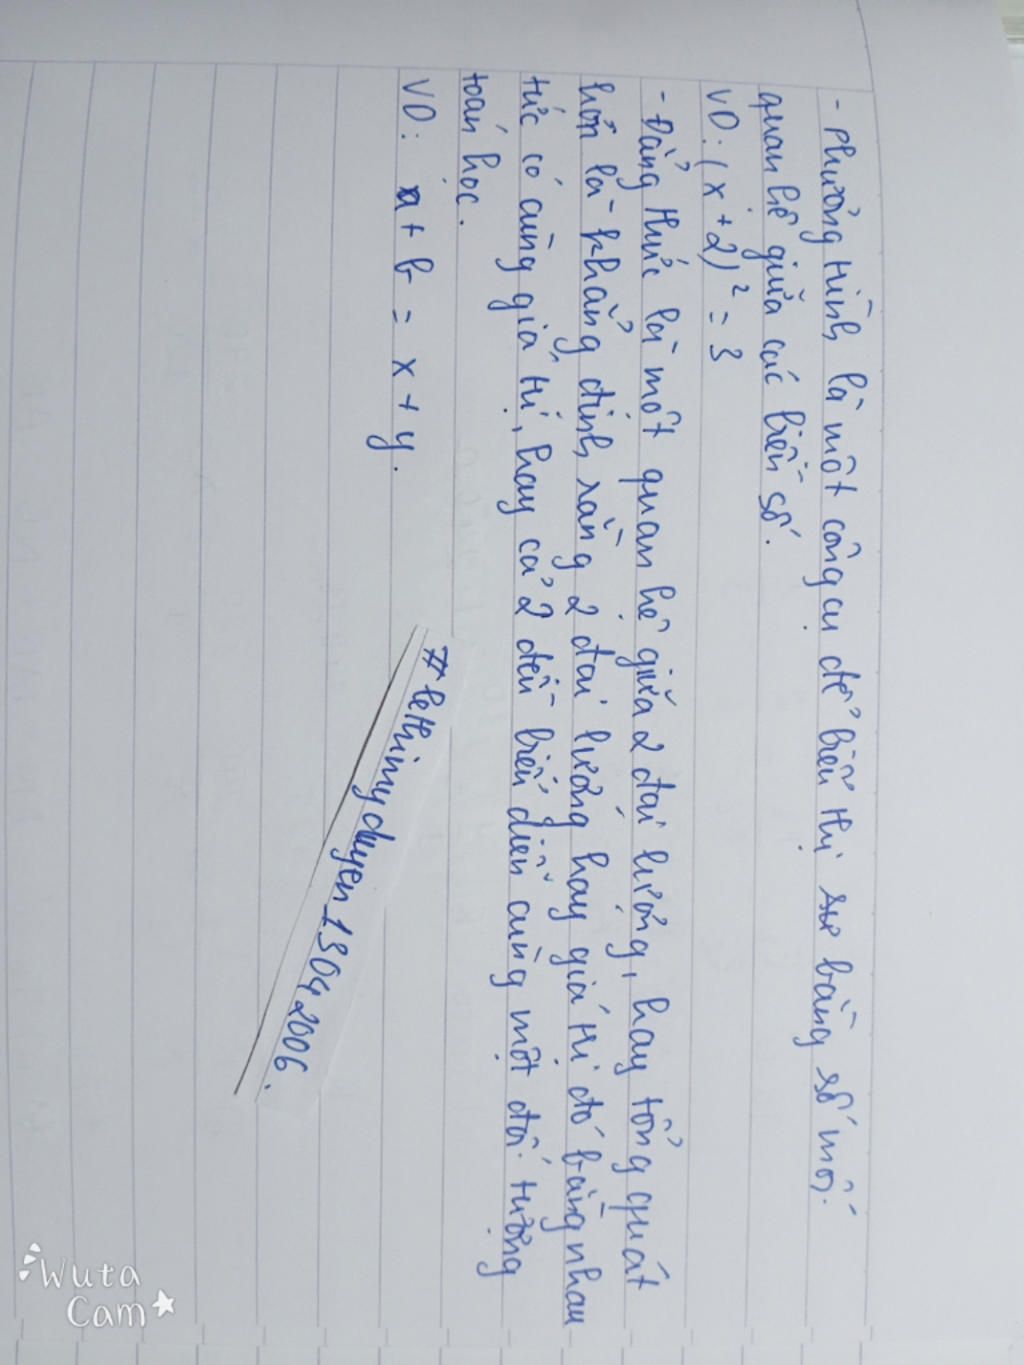 - Phương trình là một công cụ để biển thị sự bằng số mối
quan hệ giữa các biến số.
VD: (x + 2)² = 3
- Đẳng thức là một quan hệ giữa 2 đại lượng, hay tổng quát
hơn là khẳng định rằng 2 đại lượng hay giá trị đó bằng nhau
tức có cùng giá trị, hay cả 2 đều biểu diễn cùng một đối tượng
toán học.
VD: a + b = x + y.
#lethimyduyen_13042006.
Wuta
Cam